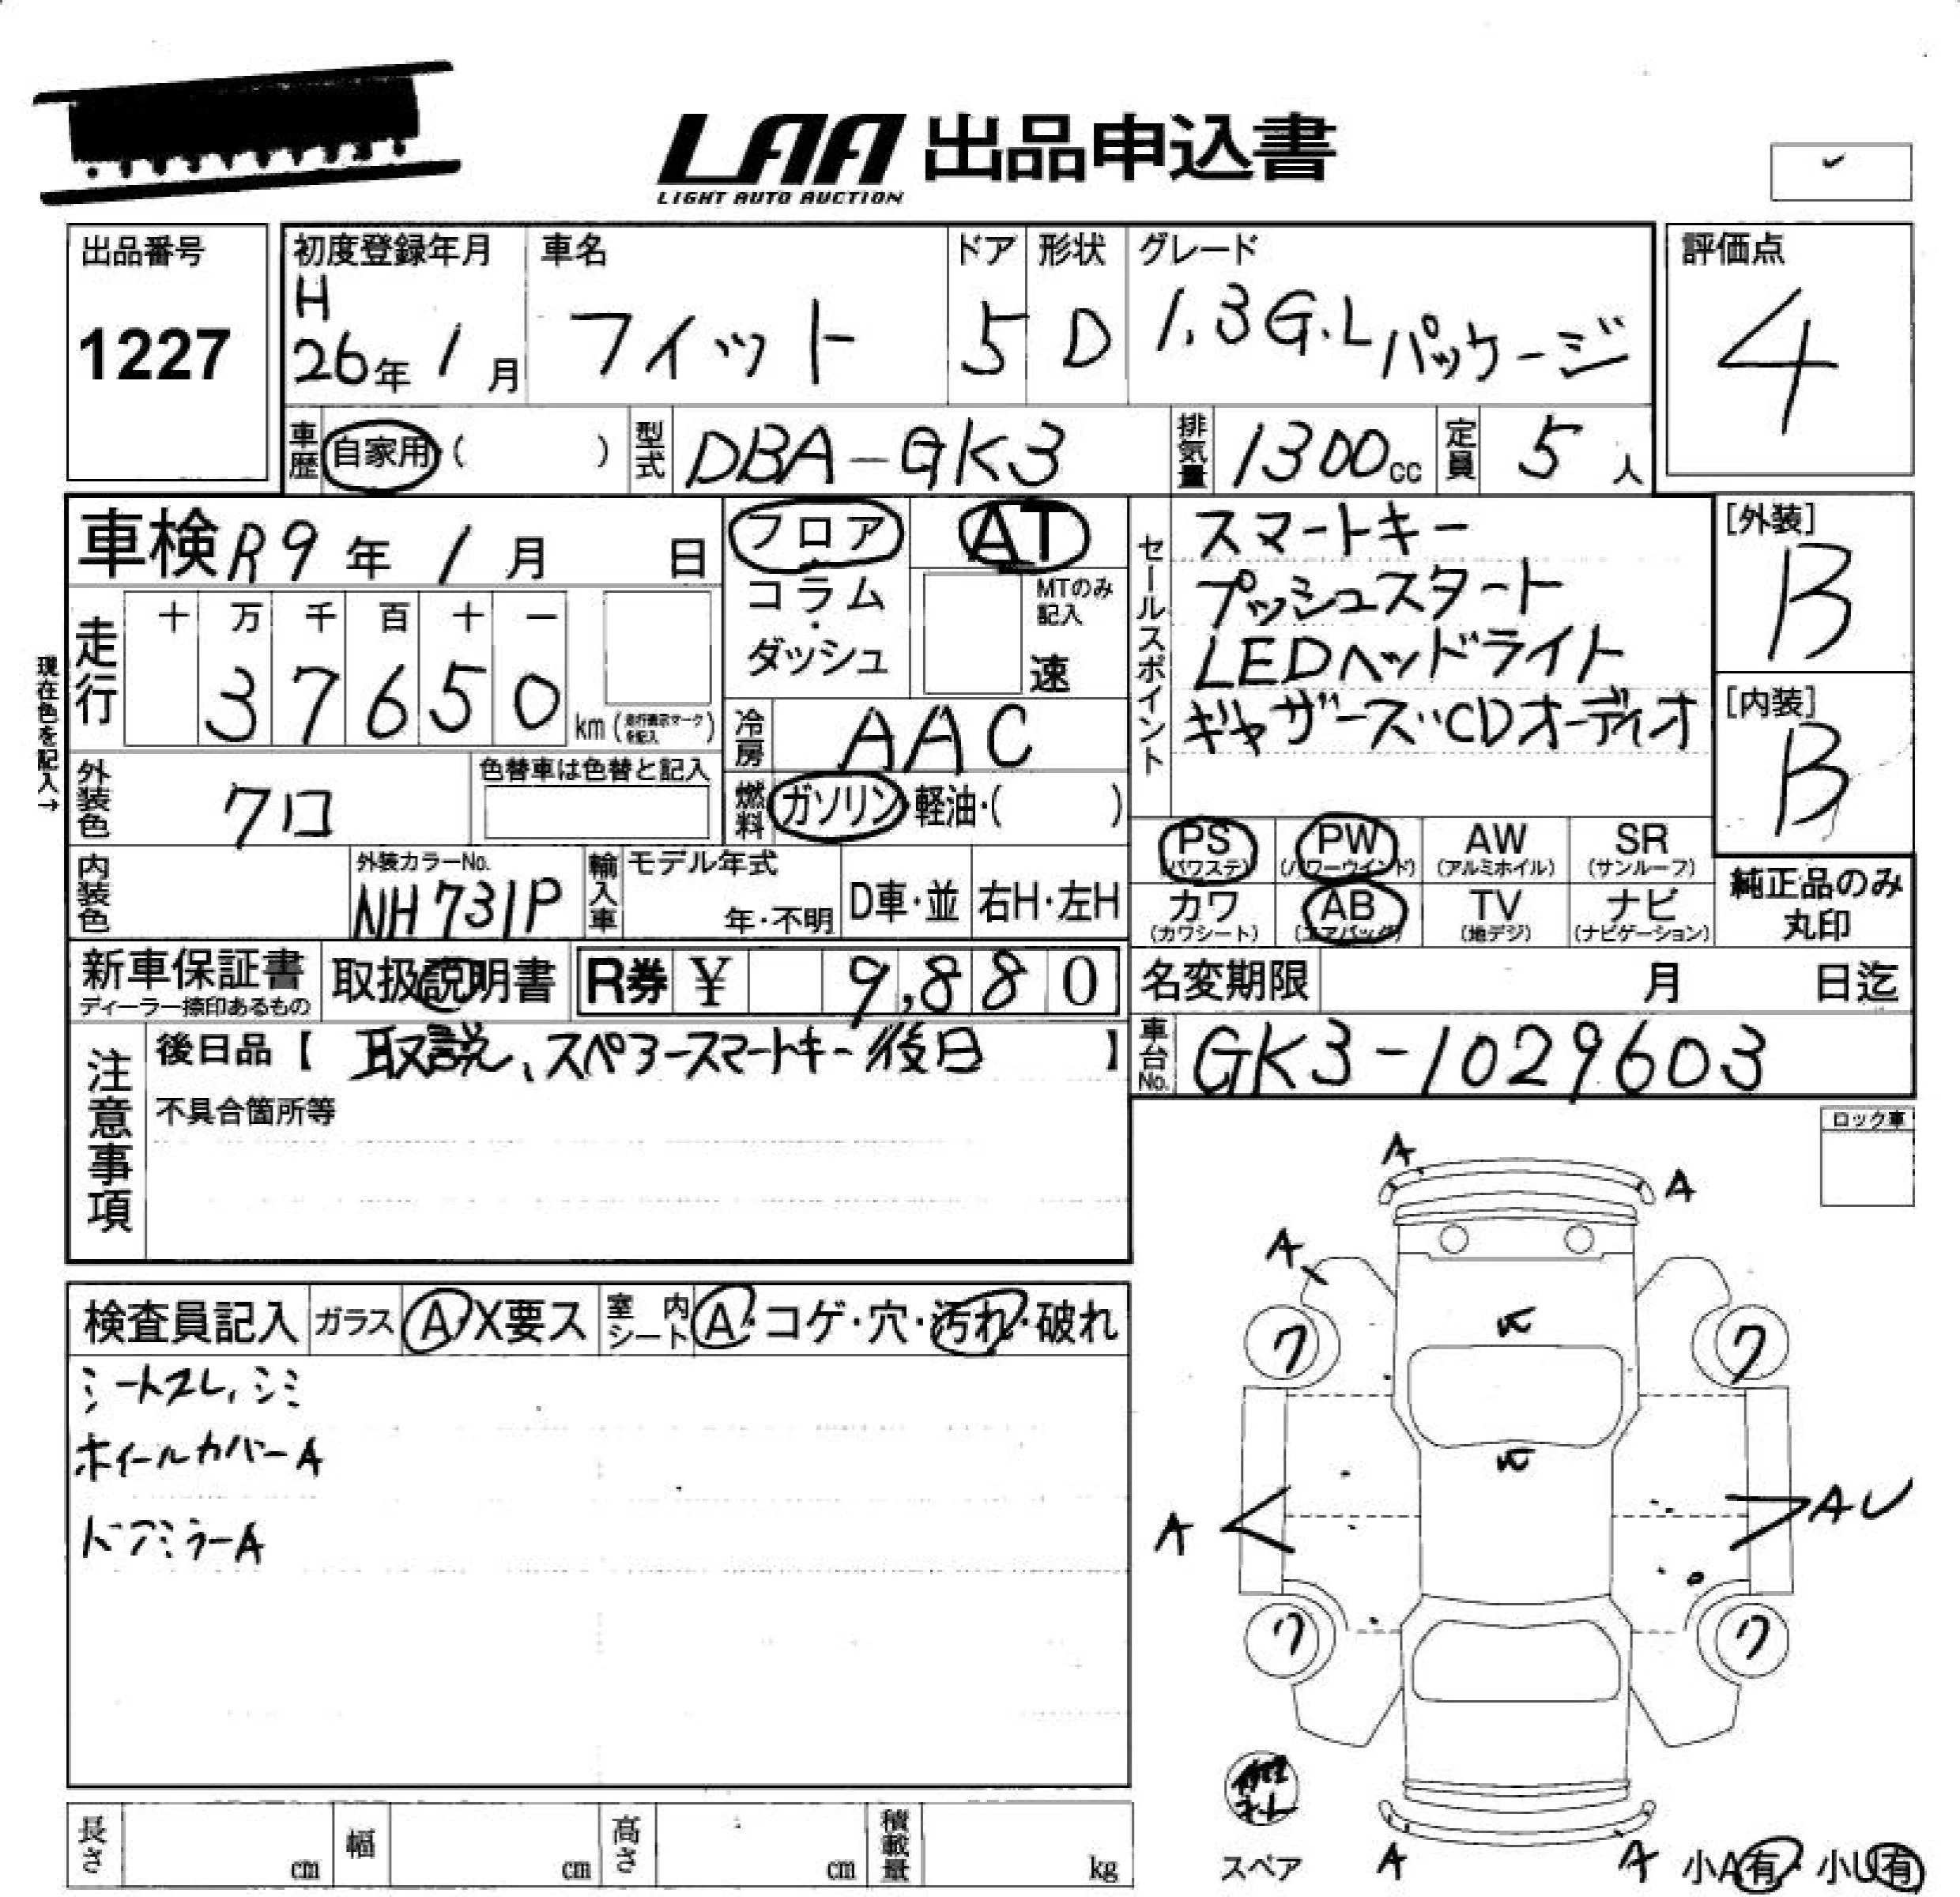 LAA 出品申込書
LIGHT AUTO AUCTION
出品番号
1227
初度登録年月
H
26年 1月
車名
フィット
ドア
5
形状
D
グレード
1.3G.Lパッケージ
評価点
4
車歴 自家用・( )
型式 DBA-GK3
排気量 1300cc
定員 5人
車検 R9年 1月 日
フロア・コラム・ダッシュ
AT
MTのみ記入
速
セールスポイント
スマートキー
プッシュスタート
LEDヘッドライト
ギャザーズCDオーディオ
[外装]
B
[内装]
B
現在色を記入→
走行
十 万 千 百 十 一
3 7 6 5 0 km(走行表示マークを記入)
冷房 AAC
外装色 クロ
色替車は色替と記入
燃料 ガソリン・軽油・( )
内装色
外装カラーNo.
NH731P
輸入車
モデル年式
年・不明
D車・並
右H・左H
PS (パワステ)
PW (パワーウインド)
AW (アルミホイル)
SR (サンルーフ)
カワ (カワシート)
AB (エアバッグ)
TV (地デジ)
ナビ (ナビゲーション)
純正品のみ丸印
新車保証書
ディーラー捺印あるもの
取扱説明書
R券 ¥ 9,880
名変期限 月 日迄
注意事項
後日品【 取説、スペアースマートキー後日 】
不具合箇所等
車台No. GK3-1029603
ロック車
検査員記入
ガラス A・X要ス
室内シート A・コゲ・穴・汚れ・破れ
シートスレ、シミ
ホイールカバーA
ドアミラーA
A
A
A
ワ
ワ
A
AU
ワ
ワ
スペア
A
A
小A有・小U有
長さ cm
幅 cm
高さ cm
積載量 kg